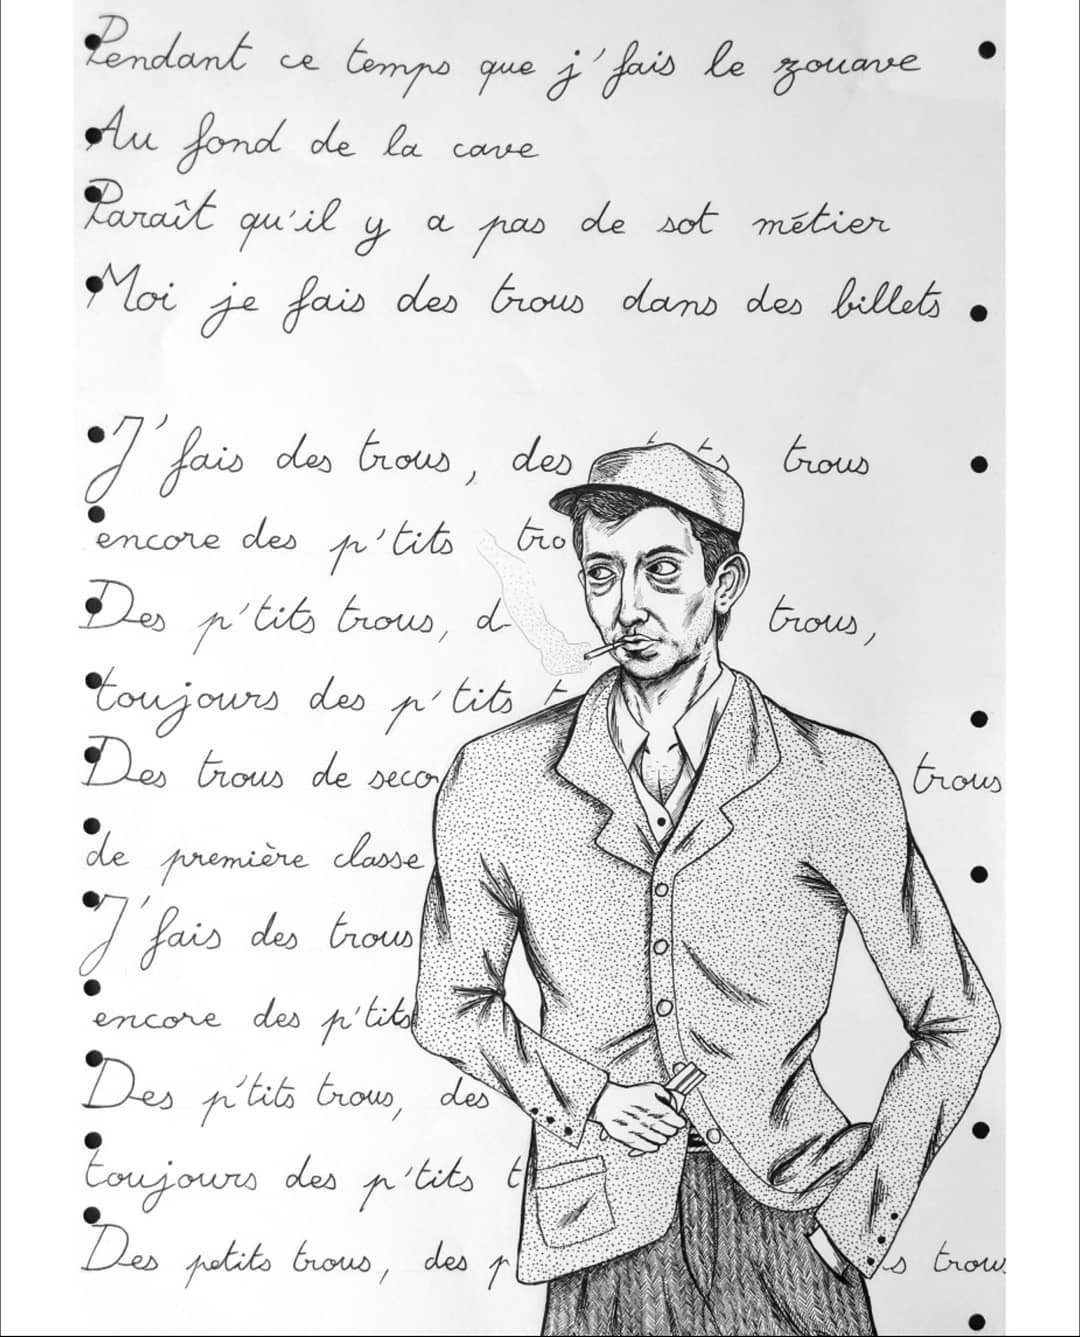 Pendant ce temps que j'fais le zouave
Au fond de la cave
Paraît qu'il y a pas de sot métier
Moi je fais des trous dans des billets
J'fais des trous, des trous
encore des p'tits
Des p'tits trous, trous,
toujours des p'tits
Des trous de trous
de première classe
J'fais des trous
encore des p'tits
Des p'tits trous, des
toujours des p'tits
Des petits trous, des trous